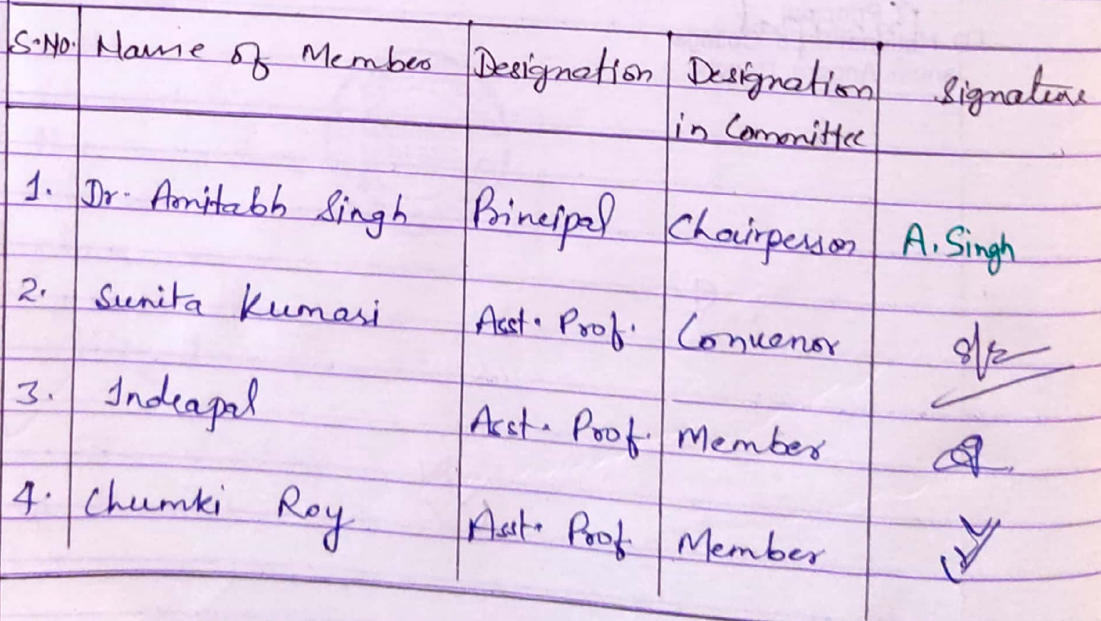 S.No. Name of Member Designation Designation in Committee Signature
1. Dr. Amitabh Singh Principal Chairperson A. Singh
2. Sunita Kumari Asst. Prof. Convenor
3. Indrapal Asst. Prof. Member
4. Chumki Roy Asst. Prof. Member